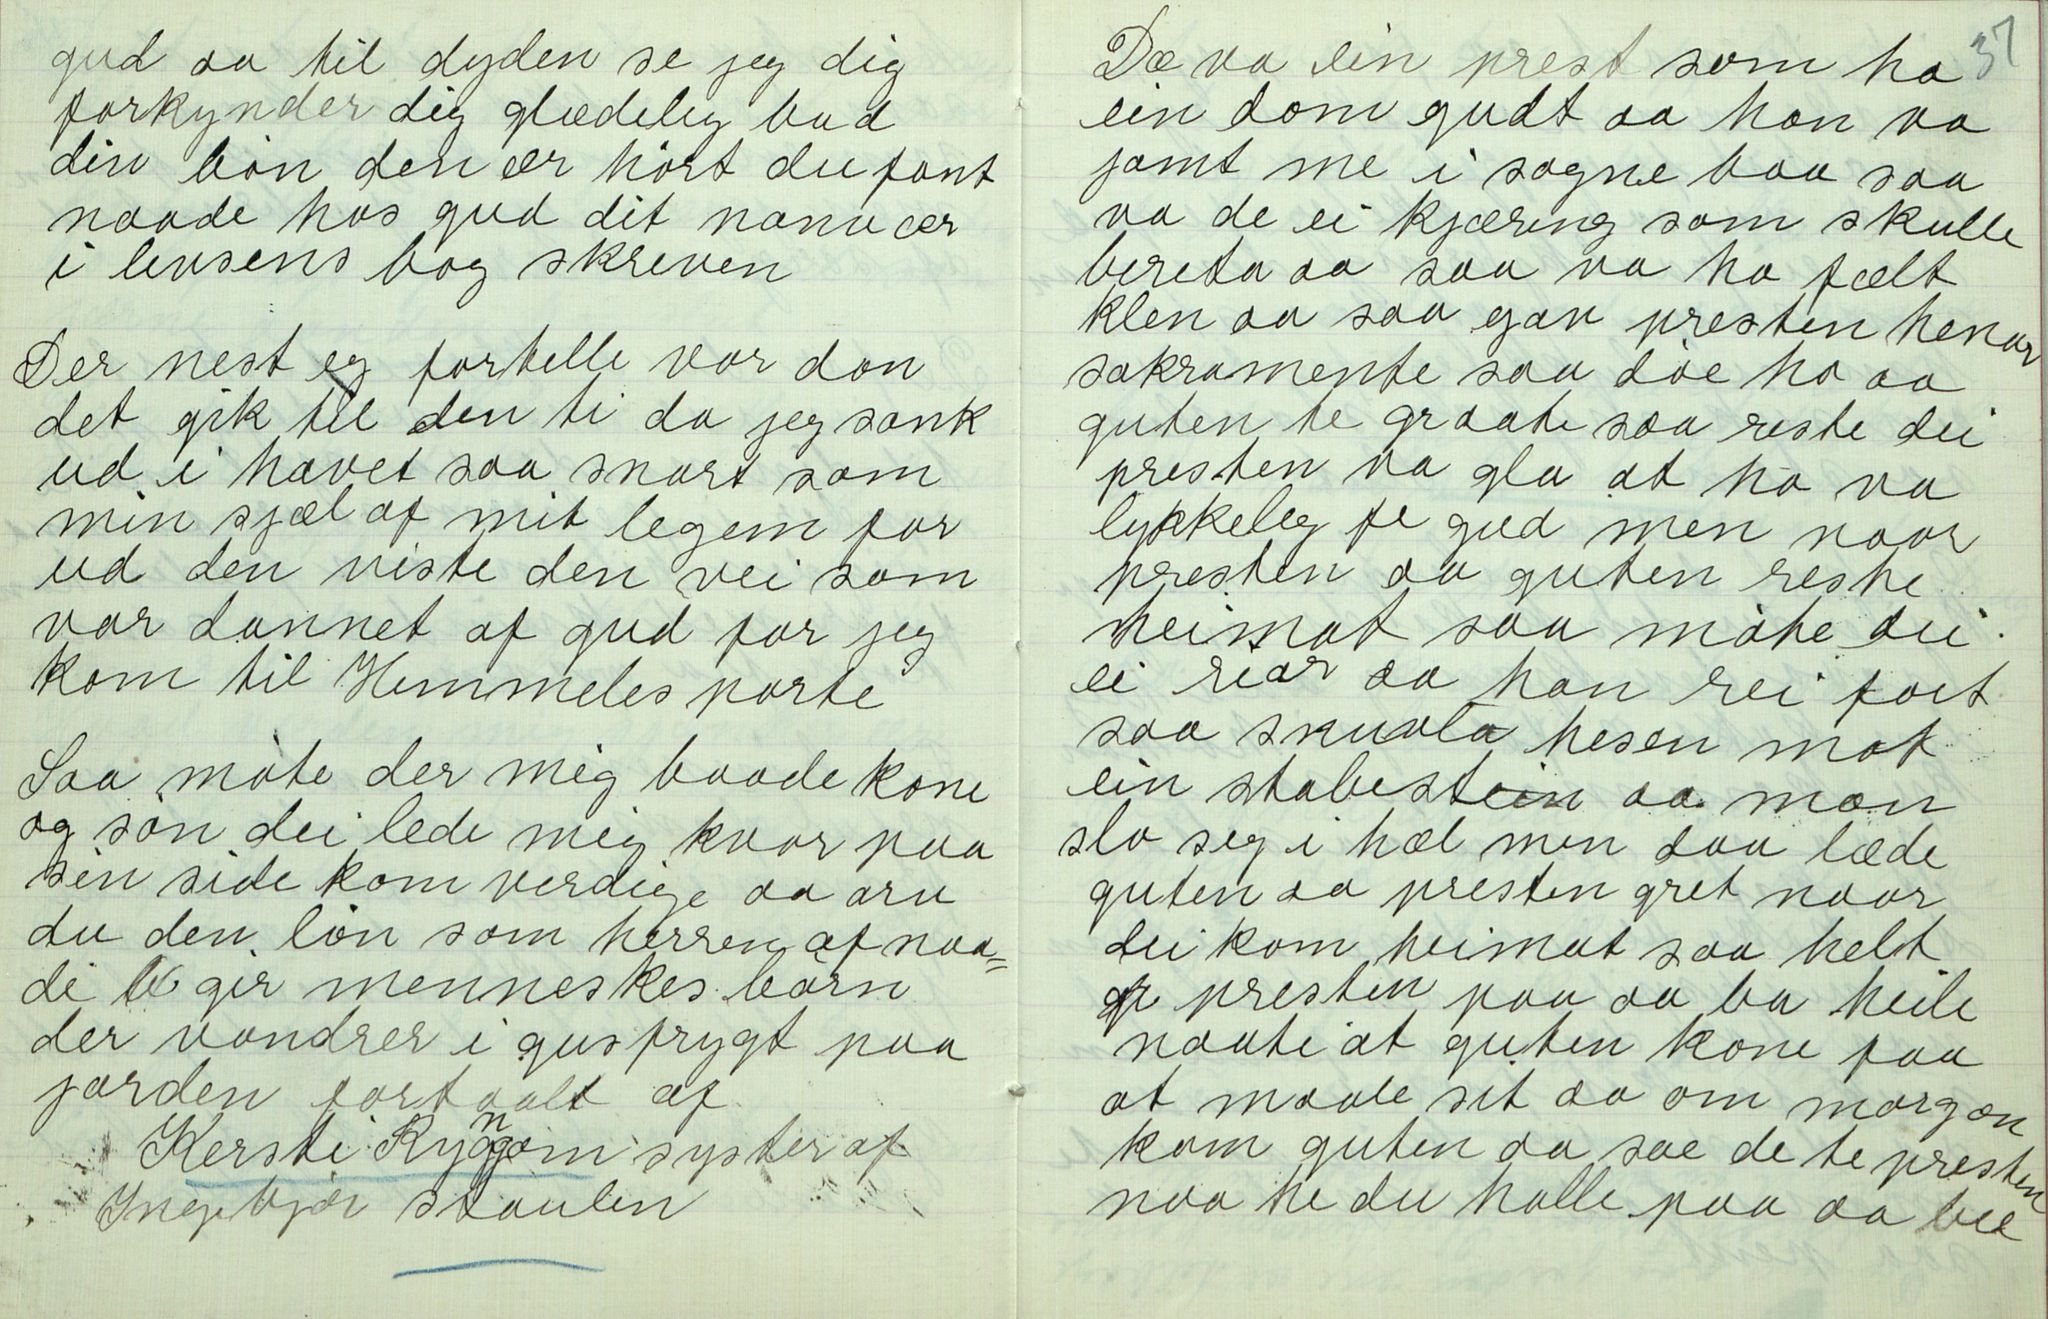 gud aa til dyden se jeg dig
forkynder dig glædelig bud
din bön den er hört du fant
naade hos gud dit navn ær
i livsens bog skreven
Der nest eg fortelle vor dan
det gik til den ti da jeg sank
ud i havet saa snart som
min sjæl af mit legem for
ud den viste den vei som
var dannet af gud for jeg
kom til Himmeles porte
Saa möte der mig baade kone
og sön dei lede mig kvar paa
sin side kom verdige aa arv
du den lön som herren af naa=
de gir menneskes börn
der vandrer i gusfrygt paa
jorden fortaalt af
Kersti Ryggom syster af
Ingebjör staulen
37
Dæ va ein prest som ha
ein dom gudt aa han va
jamt me i sogne baa saa
va de ei kjæring som skulle
bereta aa saa va ho fælt
klen aa saa gav presten henar
sakramente saa döe ho aa
guten te graate saa reste dei
presten va gla at ho va
lykkeleg fe gud men naar
presten aa guten reste
heimat saa möte dei
ei riar aa han rei fort
saa skvala hesen mot
ein stabestein aa man
slo seg i hæl men daa læde
guten aa presten gret naar
dei kom heimat saa helt
presten paa aa ba heile
naate at guten kone faa
at maale sit aa om morgon
kom guten aa sae de te presten
naa he du halle paa aa bee